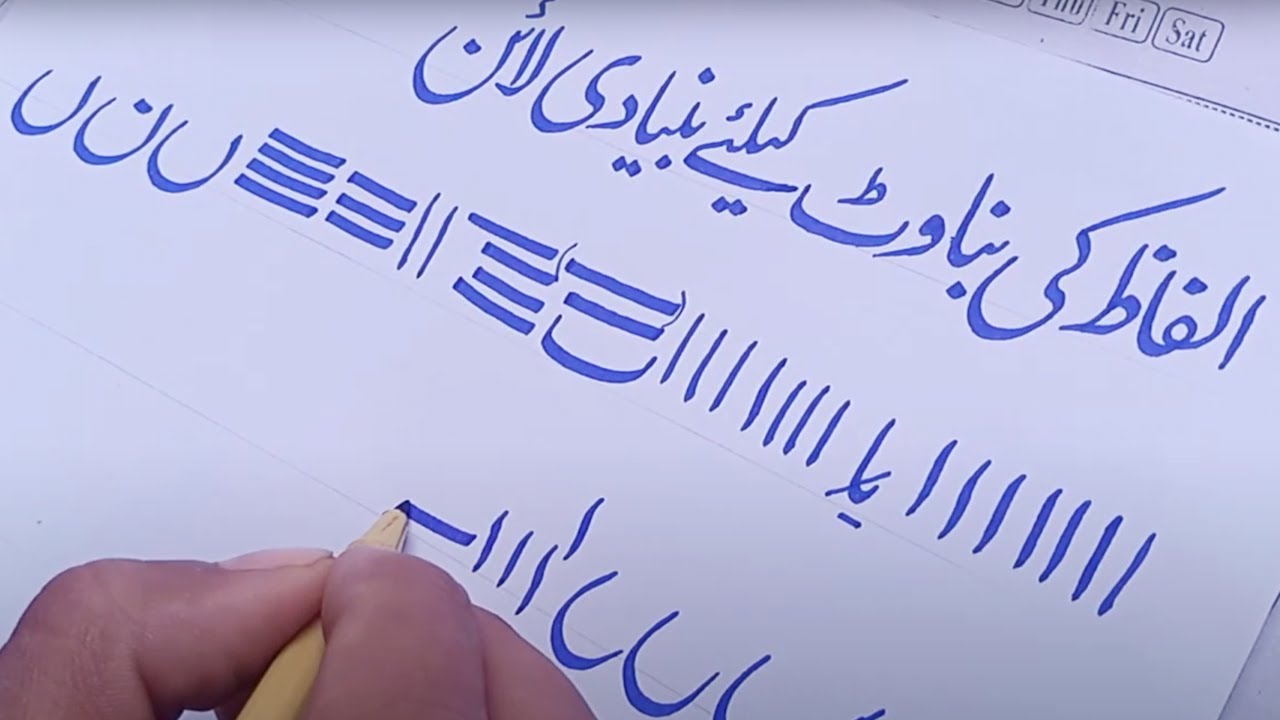 Thu Fri Sat
الفاظ کی بناوٹ کیلئے بنیادی لائن
یا
ں ن ں